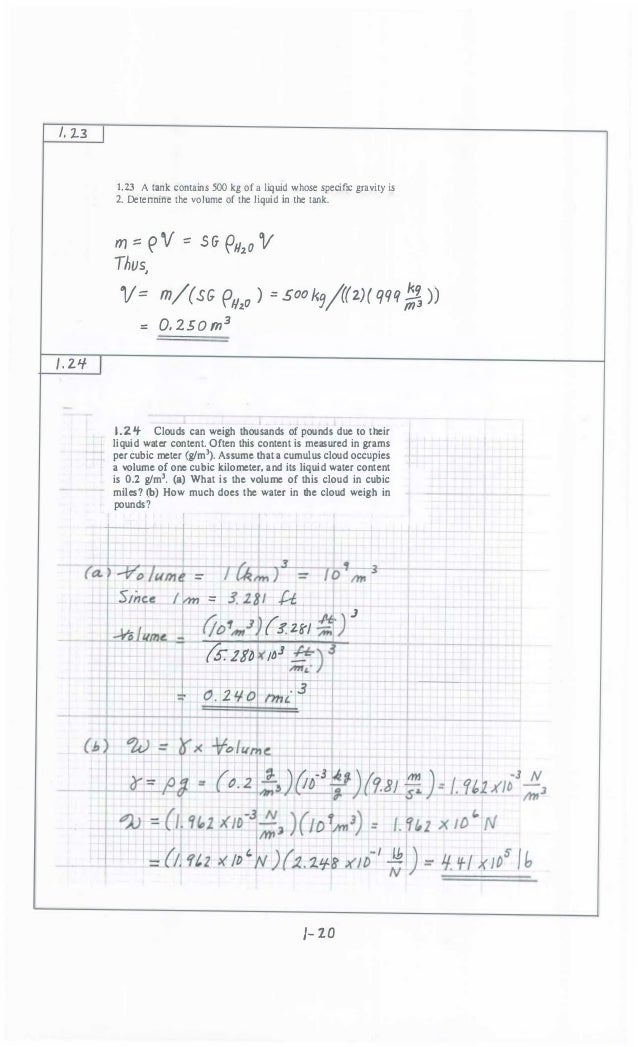 1.23
1.23 A tank contains 500 kg of a liquid whose specific gravity is
2. Determine the volume of the liquid in the tank.
m = ρV = SG ρ_H₂O V
Thus,
V = m/(SG ρ_H₂O) = 500 kg/((2)(999 kg/m³))
= 0.250 m³
1.24
1.24 Clouds can weigh thousands of pounds due to their
liquid water content. Often this content is measured in grams
per cubic meter (g/m³). Assume that a cumulus cloud occupies
a volume of one cubic kilometer, and its liquid water content
is 0.2 g/m³. (a) What is the volume of this cloud in cubic
miles? (b) How much does the water in the cloud weigh in
pounds?
(a) Volume = 1 (km)³ = 10⁹ m³
Since 1 m = 3.281 ft
Volume = (10⁹ m³)(3.281 ft/m)³ / (5.280 x 10³ ft/mi)³
= 0.240 mi³
(b) W = γ x Volume
γ = ρg = (0.2 g/m³)(10⁻³ kg/g)(9.81 m/s²) = 1.962 x 10⁻³ N/m³
W = (1.962 x 10⁻³ N/m³)(10⁹ m³) = 1.962 x 10⁶ N
= (1.962 x 10⁶ N)(2.248 x 10⁻¹ lb/N) = 4.41 x 10⁵ lb
1-20